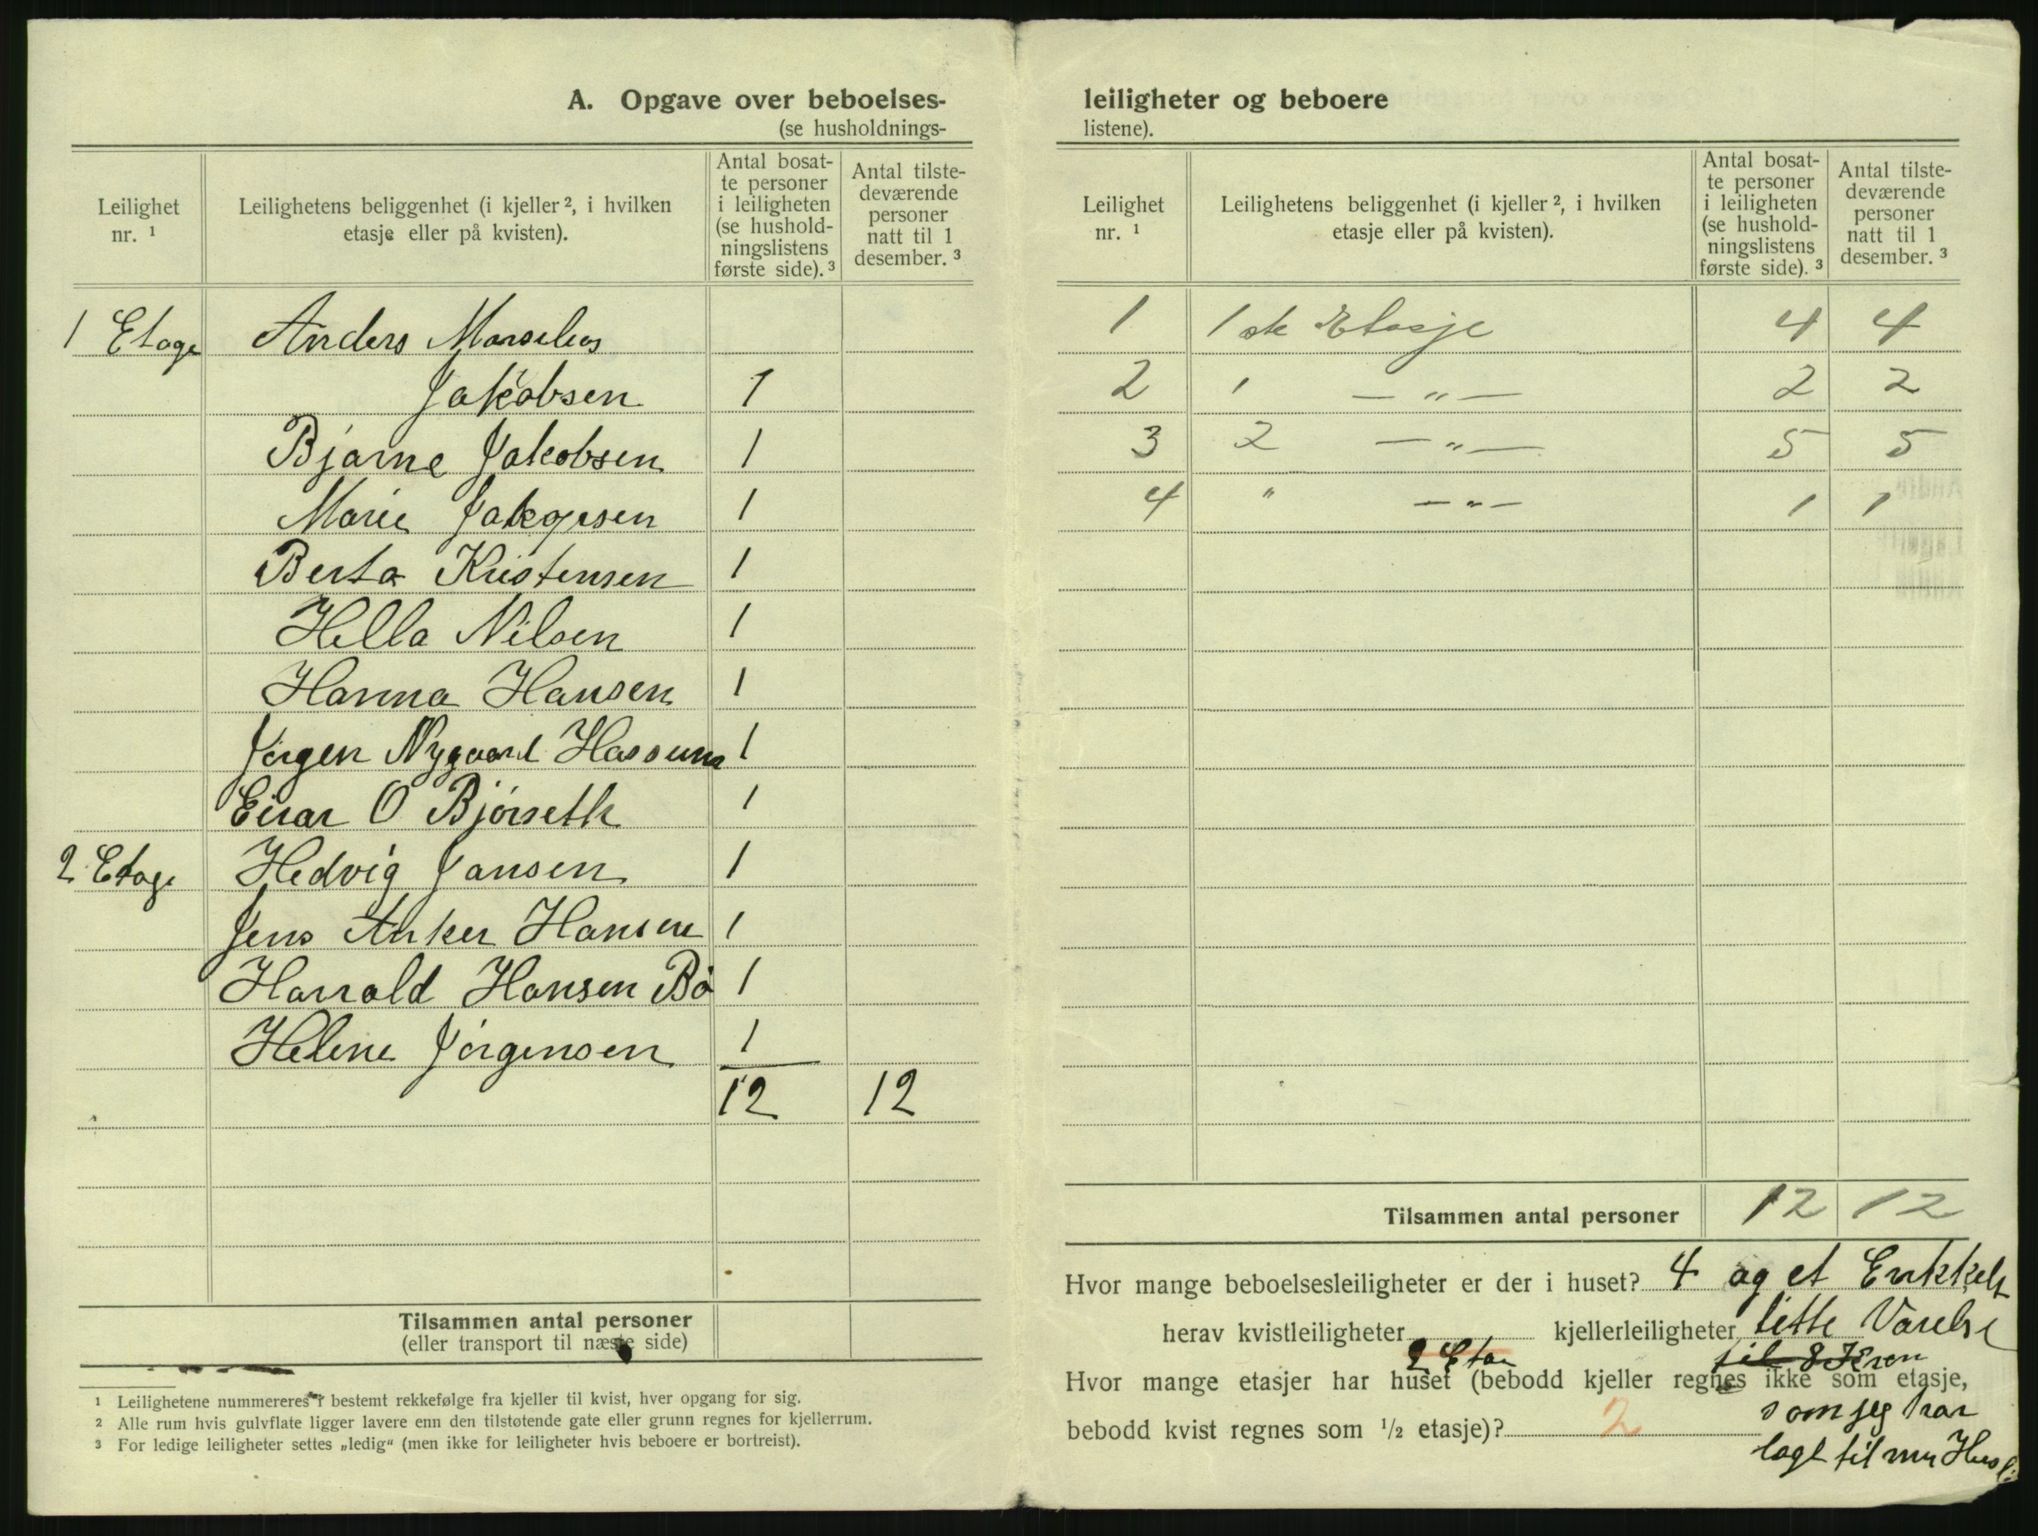 A. Opgave over beboelses-
(se husholdnings-
Leilighet
nr. 1
Leilighetens beliggenhet (i kjeller 2, i hvilken
etasje eller på kvisten).
Antal bosat-
te personer
i leiligheten
(se hushold-
ningslistens
første side). 3
Antal tilste-
deværende
personer
natt til 1
desember. 3
1 Etage Anders Marselius
Jakobsen 1
Bjarne Jakobsen 1
Marie Jakopsen 1
Berta Kristensen 1
Hella Nilsen 1
Hanna Hansen 1
Jørgen Nygaard Hassum 1
Einar O Bjørseth 1
2 Etage Hedvig Jansen 1
Jens Anker Hansen 1
Harrald Hansen Bø 1
Helene Jørgensen 1
12 12
Tilsammen antal personer
(eller transport til næste side)
1 Leilighetene nummereres i bestemt rekkefølge fra kjeller til kvist, hver opgang for sig.
2 Alle rum hvis gulvflate ligger lavere enn den tilstøtende gate eller grunn regnes for kjellerrum.
3 For ledige leiligheter settes „ledig“ (men ikke for leiligheter hvis beboere er bortreist).
leiligheter og beboere
listene).
Leilighet
nr. 1
Leilighetens beliggenhet (i kjeller 2, i hvilken
etasje eller på kvisten).
Antal bosat-
te personer
i leiligheten
(se hushold-
ningslistens
første side). 3
Antal tilste-
deværende
personer
natt til 1
desember. 3
1 1ste Etasje 4 4
2 1 — „ — 2 2
3 2 — „ — 5 5
4 „ — „ — 1 1
Tilsammen antal personer 12 12
Hvor mange beboelsesleiligheter er der i huset? 4 og et Enkkelt
herav kvistleiligheter kjellerleiligheter litte Værelse
2 Etag til
Hvor mange etasjer har huset (bebodd kjeller regnes ikke som etasje,
som jeg har
bebodd kvist regnes som 1/2 etasje)? 2
lagt til